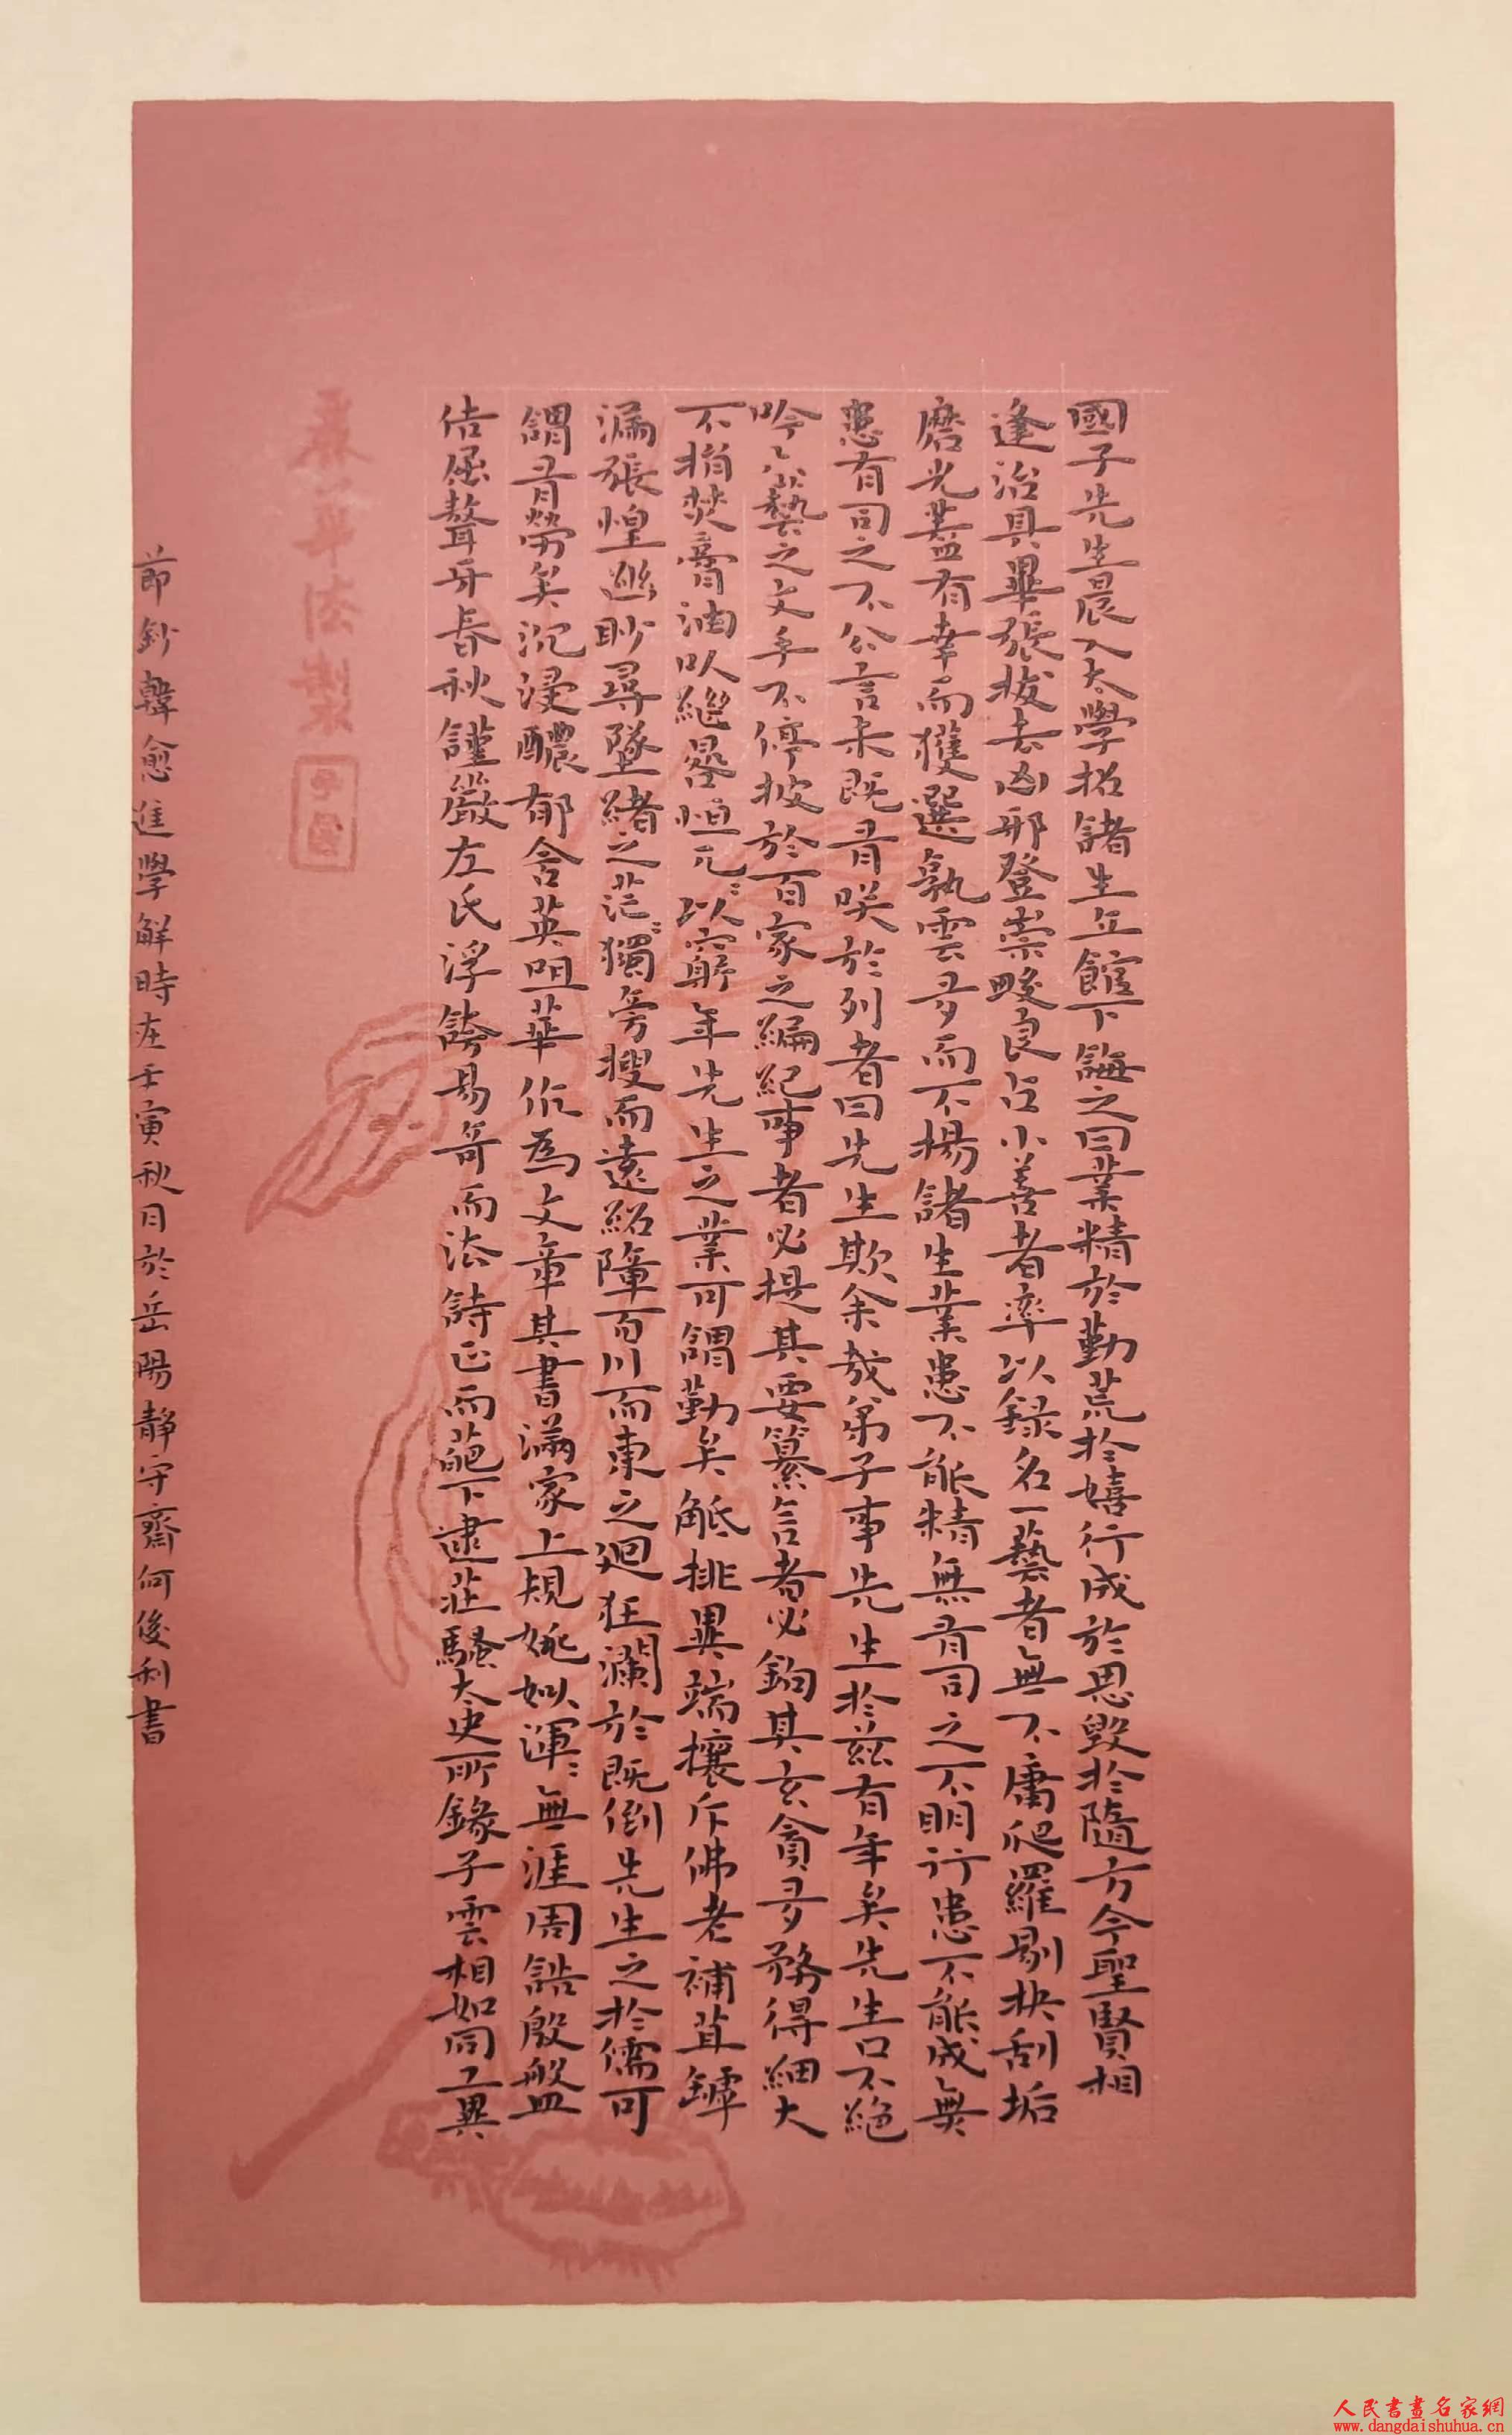 國子先生晨入太學招諸生立館下誨之曰業精於勤荒於嬉行成於思毀於隨方今聖賢相
逢治具畢張拔去凶邪登崇畯良占小善者率以録名一藝者無不庸爬羅剔抉刮垢
磨光蓋有幸而獲選孰雲多而不揚諸生業患不能精無有司之不明行患不能成無
患有司之不公言未既有笑於列者曰先生欺余哉弟子事先生於茲有年矣先生口不絕
吟六藝之文手不停披於百家之編紀事者必提其要纂言者必鉤其玄貪多務得細大
不捐焚膏油以繼晷恒兀〻以窮年先生之業可謂勤矣觝排異端攘斥佛老補苴罅
漏張惶幽眇尋墜緒之茫〻獨旁搜而遠紹障百川而東之迴狂瀾於既倒先生之於儒可
謂有勞矣沉浸醲郁含英咀華作為文章其書滿家上規姚姒渾〻無涯周誥殷盤
佶屈聱牙春秋謹嚴左氏浮誇易奇而法詩正而葩下逮莊騷太史所錄子雲相如同工異
節鈔韓愈進學解時在壬寅秋月於岳陽靜守齋何後利書
人民書畫名家網
www.dangdaishuhua.com.cn